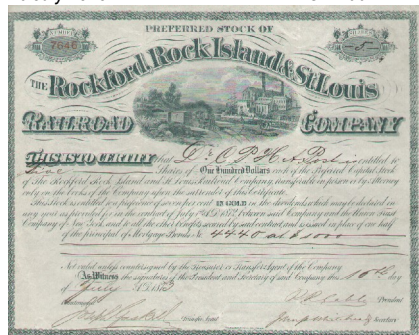 PREFERRED STOCK OF
NUMBER
7646
SHARES
5
THE Rockford, Rock Island & St. Louis
RAILROAD COMPANY
THIS IS TO CERTIFY that is entitled to
Five Shares of One Hundred Dollars each of the Preferred Capital Stock
of The Rockford Rock Island and St. Louis Railroad Company, transferable in person or by Attorney
only on the books of the Company upon the surrender of this Certificate.
This Stock is entitled to a preference of seven per cent IN GOLD in the dividends which may be declared in
any year as provided for in the contract of July between said Company and the Union Trust
Company of New York and to all the other benefits secured by said contract and issued in place of one half
of the principal of Mortgage Bonds No.
Not valid unless countersigned by the Treasurer or Transfer Agent of the Company
As Witness the signatures of the President and Secretary of said Company this 10th day
of July A.D. 18
President
Transfer Agent
Secretary